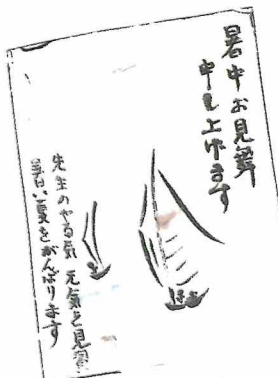 暑中お見舞
申し上げます
先生のやる気 元気を見習
暑い夏をがんばります